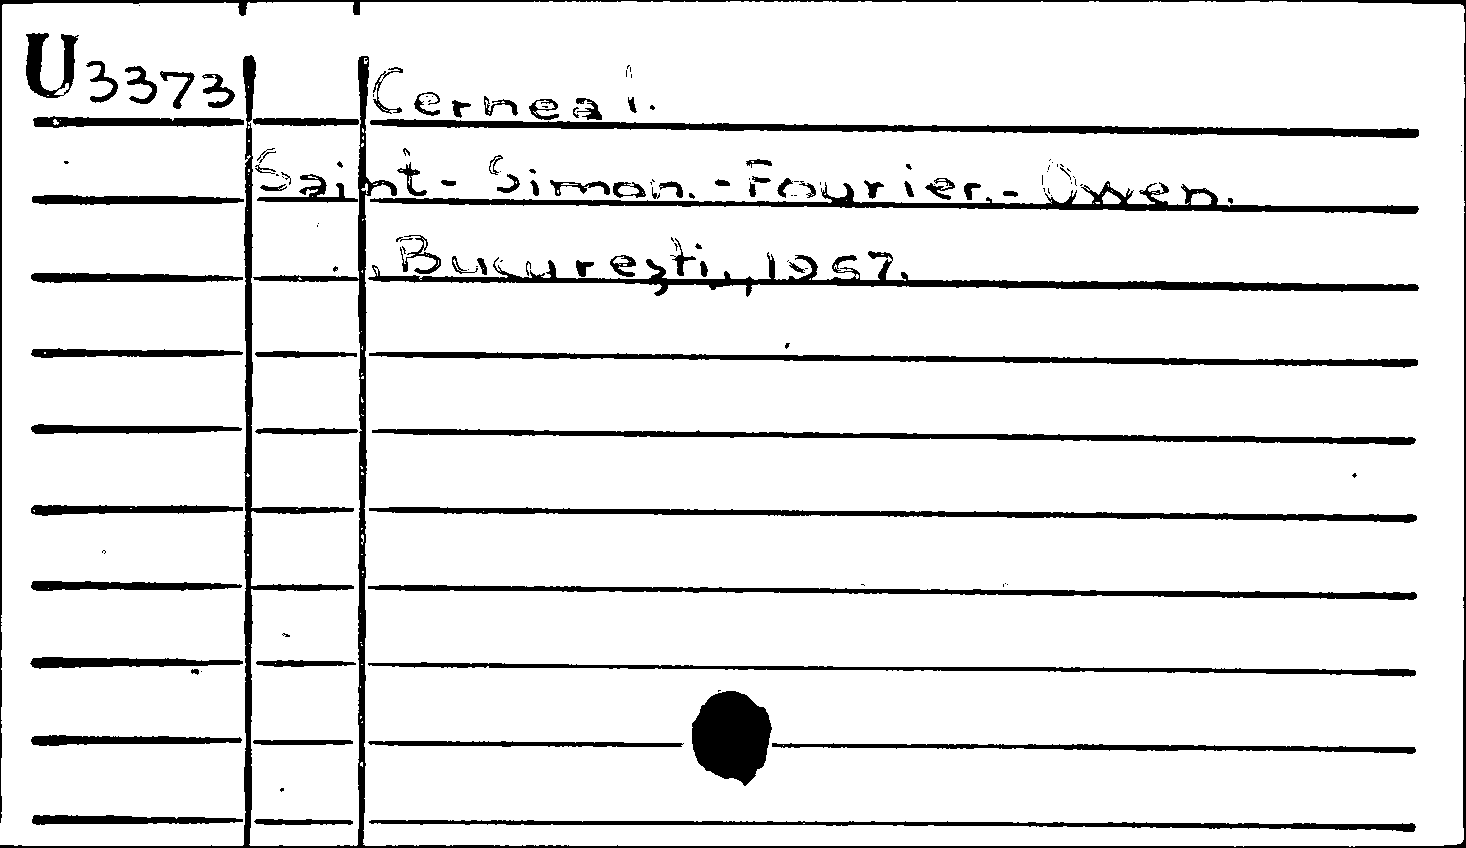 U3373 Cernea I.
Saint-Simon.-Fourier.-Owen.
București, 1957.